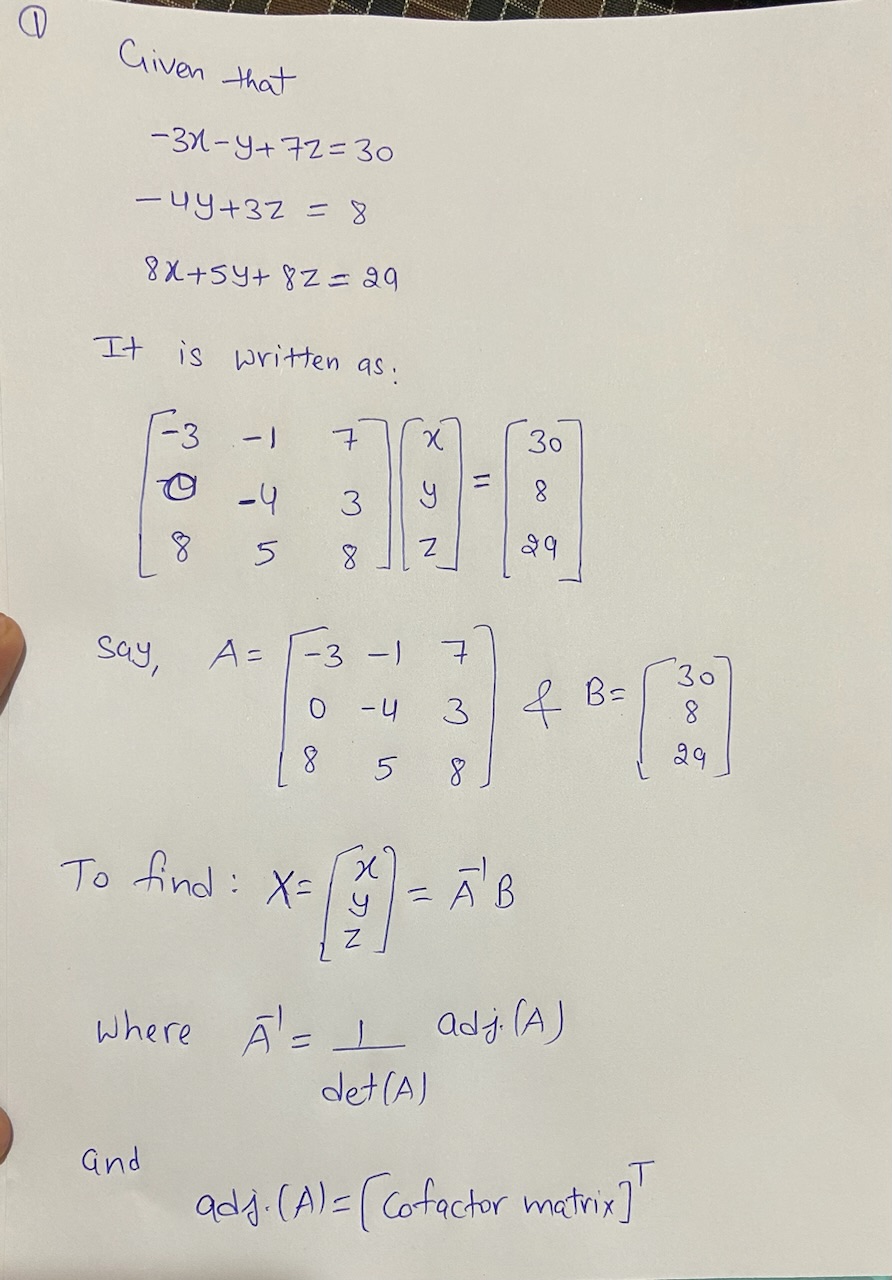 ①
Given that
-3x-y+7z=30
-4y+3z = 8
8x+5y+8z=29
It is written as:
[-3 -1 7; 0 -4 3; 8 5 8] [x; y; z] = [30; 8; 29]
Say, A= [-3 -1 7; 0 -4 3; 8 5 8] & B= [30; 8; 29]
To find: X= [x; y; z] = A⁻¹B
Where A⁻¹ = 1/det(A) adj.(A)
and
adj.(A)=[Cofactor matrix]ᵀ